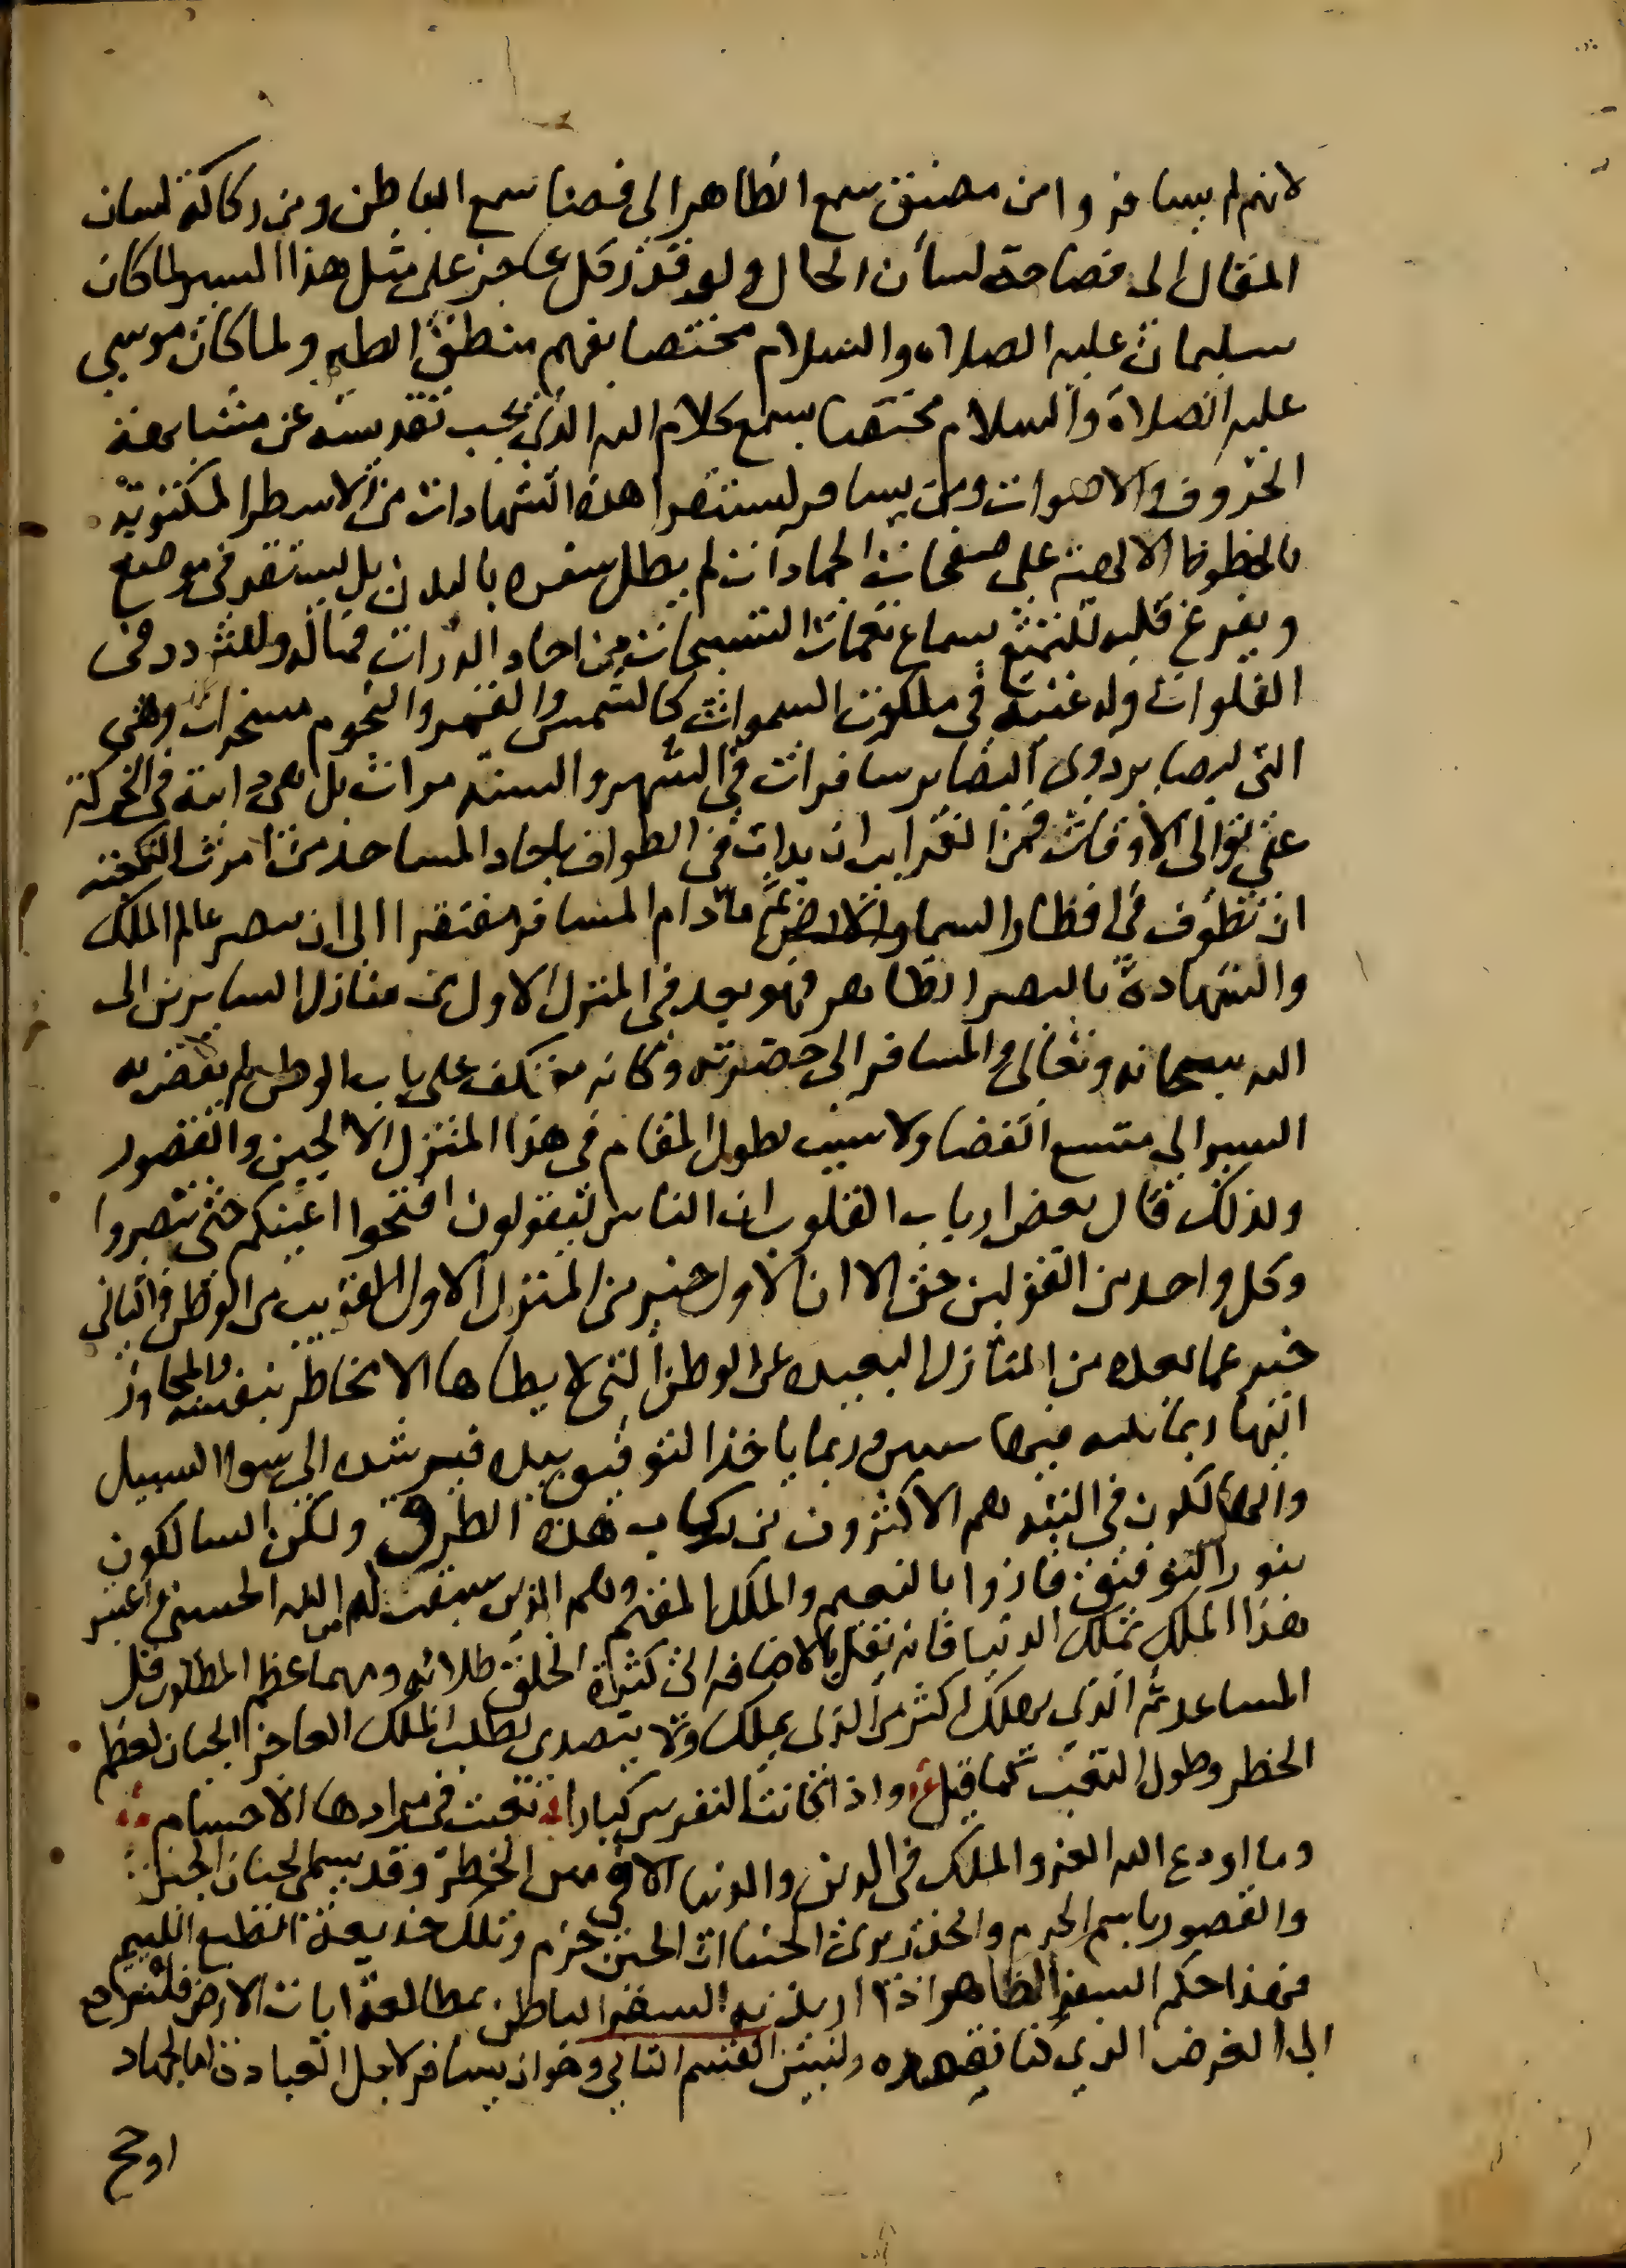 لانهم لم يسافروا من مضيق سمع الظاهر الى فضا سمع الباطن ومن ركاكة لسان
المقال الى فصاحة لسان الحال ولو قدر كل عاجز على مثل هذا السير لما كان
سليمان عليه الصلاه والسلام مختصا بفهم منطق الطير ولما كان موسي
عليه الصلاة والسلام مختصا بسمع كلام الله الذي يجب تقديسه عن مشابهة
الحروف والاصوات ومن يسافر ليستقرا هذه الشهادات من الاسطر المكتوبة
بالخطوط الالهية على صفحات الجمادات لم يطل سفره بالبدن بل يستقر في موضع
ويفرغ قلبه للتمتع بسماع نغمات التسبيحات من احاد الذرات فماله وللتردد في
الفلوات وله غنية في ملكوت السموات كالشمس والقمر والنجوم مسخرات وهي
التي لبصاير ذوى البصاير سافرات في الشهر والسنه مرات بل هي دايبة في الحركة
على توالى الاوقات فمن الغرايب ان يداب في الطواف باحاد المساجد من امرت الكعبة
ان تطوف في اقطار السما والارض ثم ما دام المسافر مفتقرا الى ان يبصر عالم الملك
والشهادة بالبصر الظاهر فهو بعد في المنزل الاول من منازل السايرين الى
الله سبحانه وتعالى والمسافر الى حضرته وكانه معتكف على باب الوطن لم يفض به
السير الى متسع الفضا ولا سبب لطول المقام في هذا المنزل الا الجبن والقصور
ولذلك قال بعض ارباب القلوب ان الناس ليقولون افتحوا اعينكم حتى تبصروا
وكل واحد من القولين حق الا ان الاول خبر من المنزل الاول القريب من الوطن والثاني
خبر عما بعده من المنازل البعيده عن الوطن التي لا يطاها الا مخاطر بنفسه والمجاوز
اليها ربما يتيه فيها سنين وربما ياخذ التوفيق بيده فيرشده الى سوا السبيل
والهالكون في التيه هم الاكثرون من ركاب هذه الطرق ولكن السالكون
بنور التوفيق فازوا بالنعيم والملك المقيم وهم الذين سبقت لهم من الله الحسنى واعتبر
هذا الملك بملك الدنيا فانه يقل بالاضافه الى كثرة الخلق طلابه ومهما عظم المطلوب قل
المساعد ثم الذي يهلك اكثر من الذي يملك ولا يتصدى لطلب الملك العاجز الجبان لعظم
الخطر وطول التعب كما قيل واذا كانت النفوس كبارا تعبت في مرادها الاجسام
وما اودع الله العز والملك في الدين والدنيا الا في حيز الخطر وقد يسمى الجبان الجبن
والقصور باسم الحزم والحذر يرى الجبنا ان الجبن حزم وتلك خديعة الطبع اللييم
فهذا حكم السفر الظاهر اذا اريد به السفر الباطن بمطالعة ايات الارض فلنرجع
الى الغرض الذي كنا نقصده ولنبين القسم الثاني وهو ان يسافر لاجل العبادة اما لجهاد
او حج